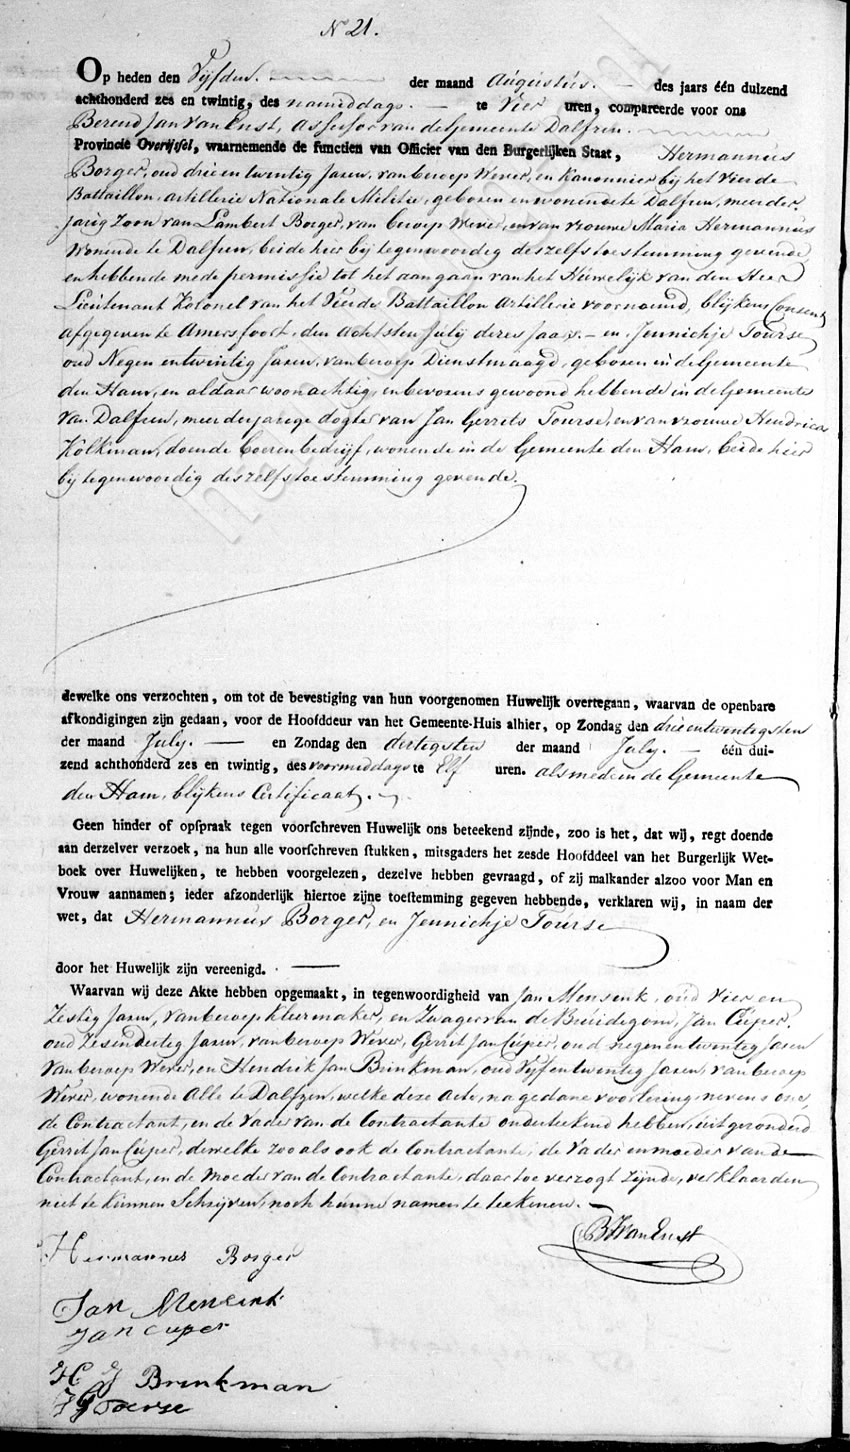 N 21.
Op heden den Vijfden. der maand Augustus. — des jaars één duizend
achthonderd zes en twintig, des namiddags. — te Vier uren, compareerde voor ons
Berend Jan van Enst, Assessor van de Gemeente Dalfsen.
Provincie Overijssel, waarnemende de functien van Officier van den Burgerlijken Staat, Hermannus
Borger, oud drie en twintig Jaren, van beroep Wever, en Kanonnier bij het Vierde
Battaillon, artillerie Nationale Militie, geboren en woonende te Dalfsen, meerder-
jarig zoon van Lambert Borger, van beroep Wever, en van vrouwe Maria Hermannus
Wonende te Dalfsen, beide hier bij tegenwoordig deszelfs toestemming gevende
en hebbende mede permissie tot het aangaan van het Huwelijk van den Heer
Lieutenant Kolonel van het Vierde Battaillon Artillerie voornoemd, blijkens Consent
afgegeven te Amersfoort, den Achtsten July dezes Jaars. — en Jennichje Tourse
oud Negen en twintig Jaren, van beroep Dienstmaagd, geboren in de Gemeente
den Ham, en aldaar woonachtig, en bevorens gewoond hebbende in de Gemeente
van Dalfsen, meerderjarege dogter van Jan Gerrits Tourse, en van vrouwe Hendrica
Kolkman, doende boerenbedrijf, wonende in de Gemeente den Ham, beide hier
bij tegenwoordig deszelfs toestemming gevende.
dewelke ons verzochten, om tot de bevestiging van hun voorgenomen Huwelijk overtegaan, waarvan de openbare
afkondigingen zijn gedaan, voor de Hoofddeur van het Gemeente-Huis alhier, op Zondag den drie en twentegsten
der maand July. — en Zondag den dertegsten der maand July. — één dui-
zend achthonderd zes en twintig, des voormiddags te Elf uren. als mede in de Gemeente
den Ham, blijkens Certificaat.
Geen hinder of opspraak tegen voorschreven Huwelijk ons beteekend zijnde, zoo is het, dat wij, regt doende
aan derzelver verzoek, na hun alle voorschreven stukken, mitsgaders het zesde Hoofddeel van het Burgerlijk Wet-
boek over Huwelijken, te hebben voorgelezen, dezelve hebben gevraagd, of zij malkander alzoo voor Man en
Vrouw aannamen; ieder afzonderlijk hiertoe zijne toestemming gegeven hebbende, verklaren wij, in naam der
wet, dat Hermannus Borger, en Jennichje Tourse
door het Huwelijk zijn vereenigd. —
Waarvan wij deze Akte hebben opgemaakt, in tegenwoordigheid van Jan Mensenk, oud Vier en
Zestig Jaren, van beroep Kleermaker, en Zwager van de Bruidegom, Jan Cuper,
oud Zesenderteg Jaren, van beroep Wever, Gerrit Jan Cuper, oud negen en twenteg Jaren
van beroep Wever, en Hendrik Jan Brinkman, oud Vyf en twenteg Jaren, van beroep
Wever, wonende Alle te Dalfsen, welke deze Acte, na gedane voorlezing, nevens ons,
de Contractant, en de Vader van de Contractante onderteekend hebben, uitgezonderd
Gerrit Jan Cuper, dewelke zoo als ook de Contractante, de Vader en moeder van de
Contractant, en de Moeder van de Contractante, daartoe verzogt zijnde, verklaarden
niet te kunnen Schrijven, noch hunne namen te teekenen. —
BJ van Enst
Hermannes Borger
Jan Mensink
Jan Cuper
H J Brinkman
JG Toerse